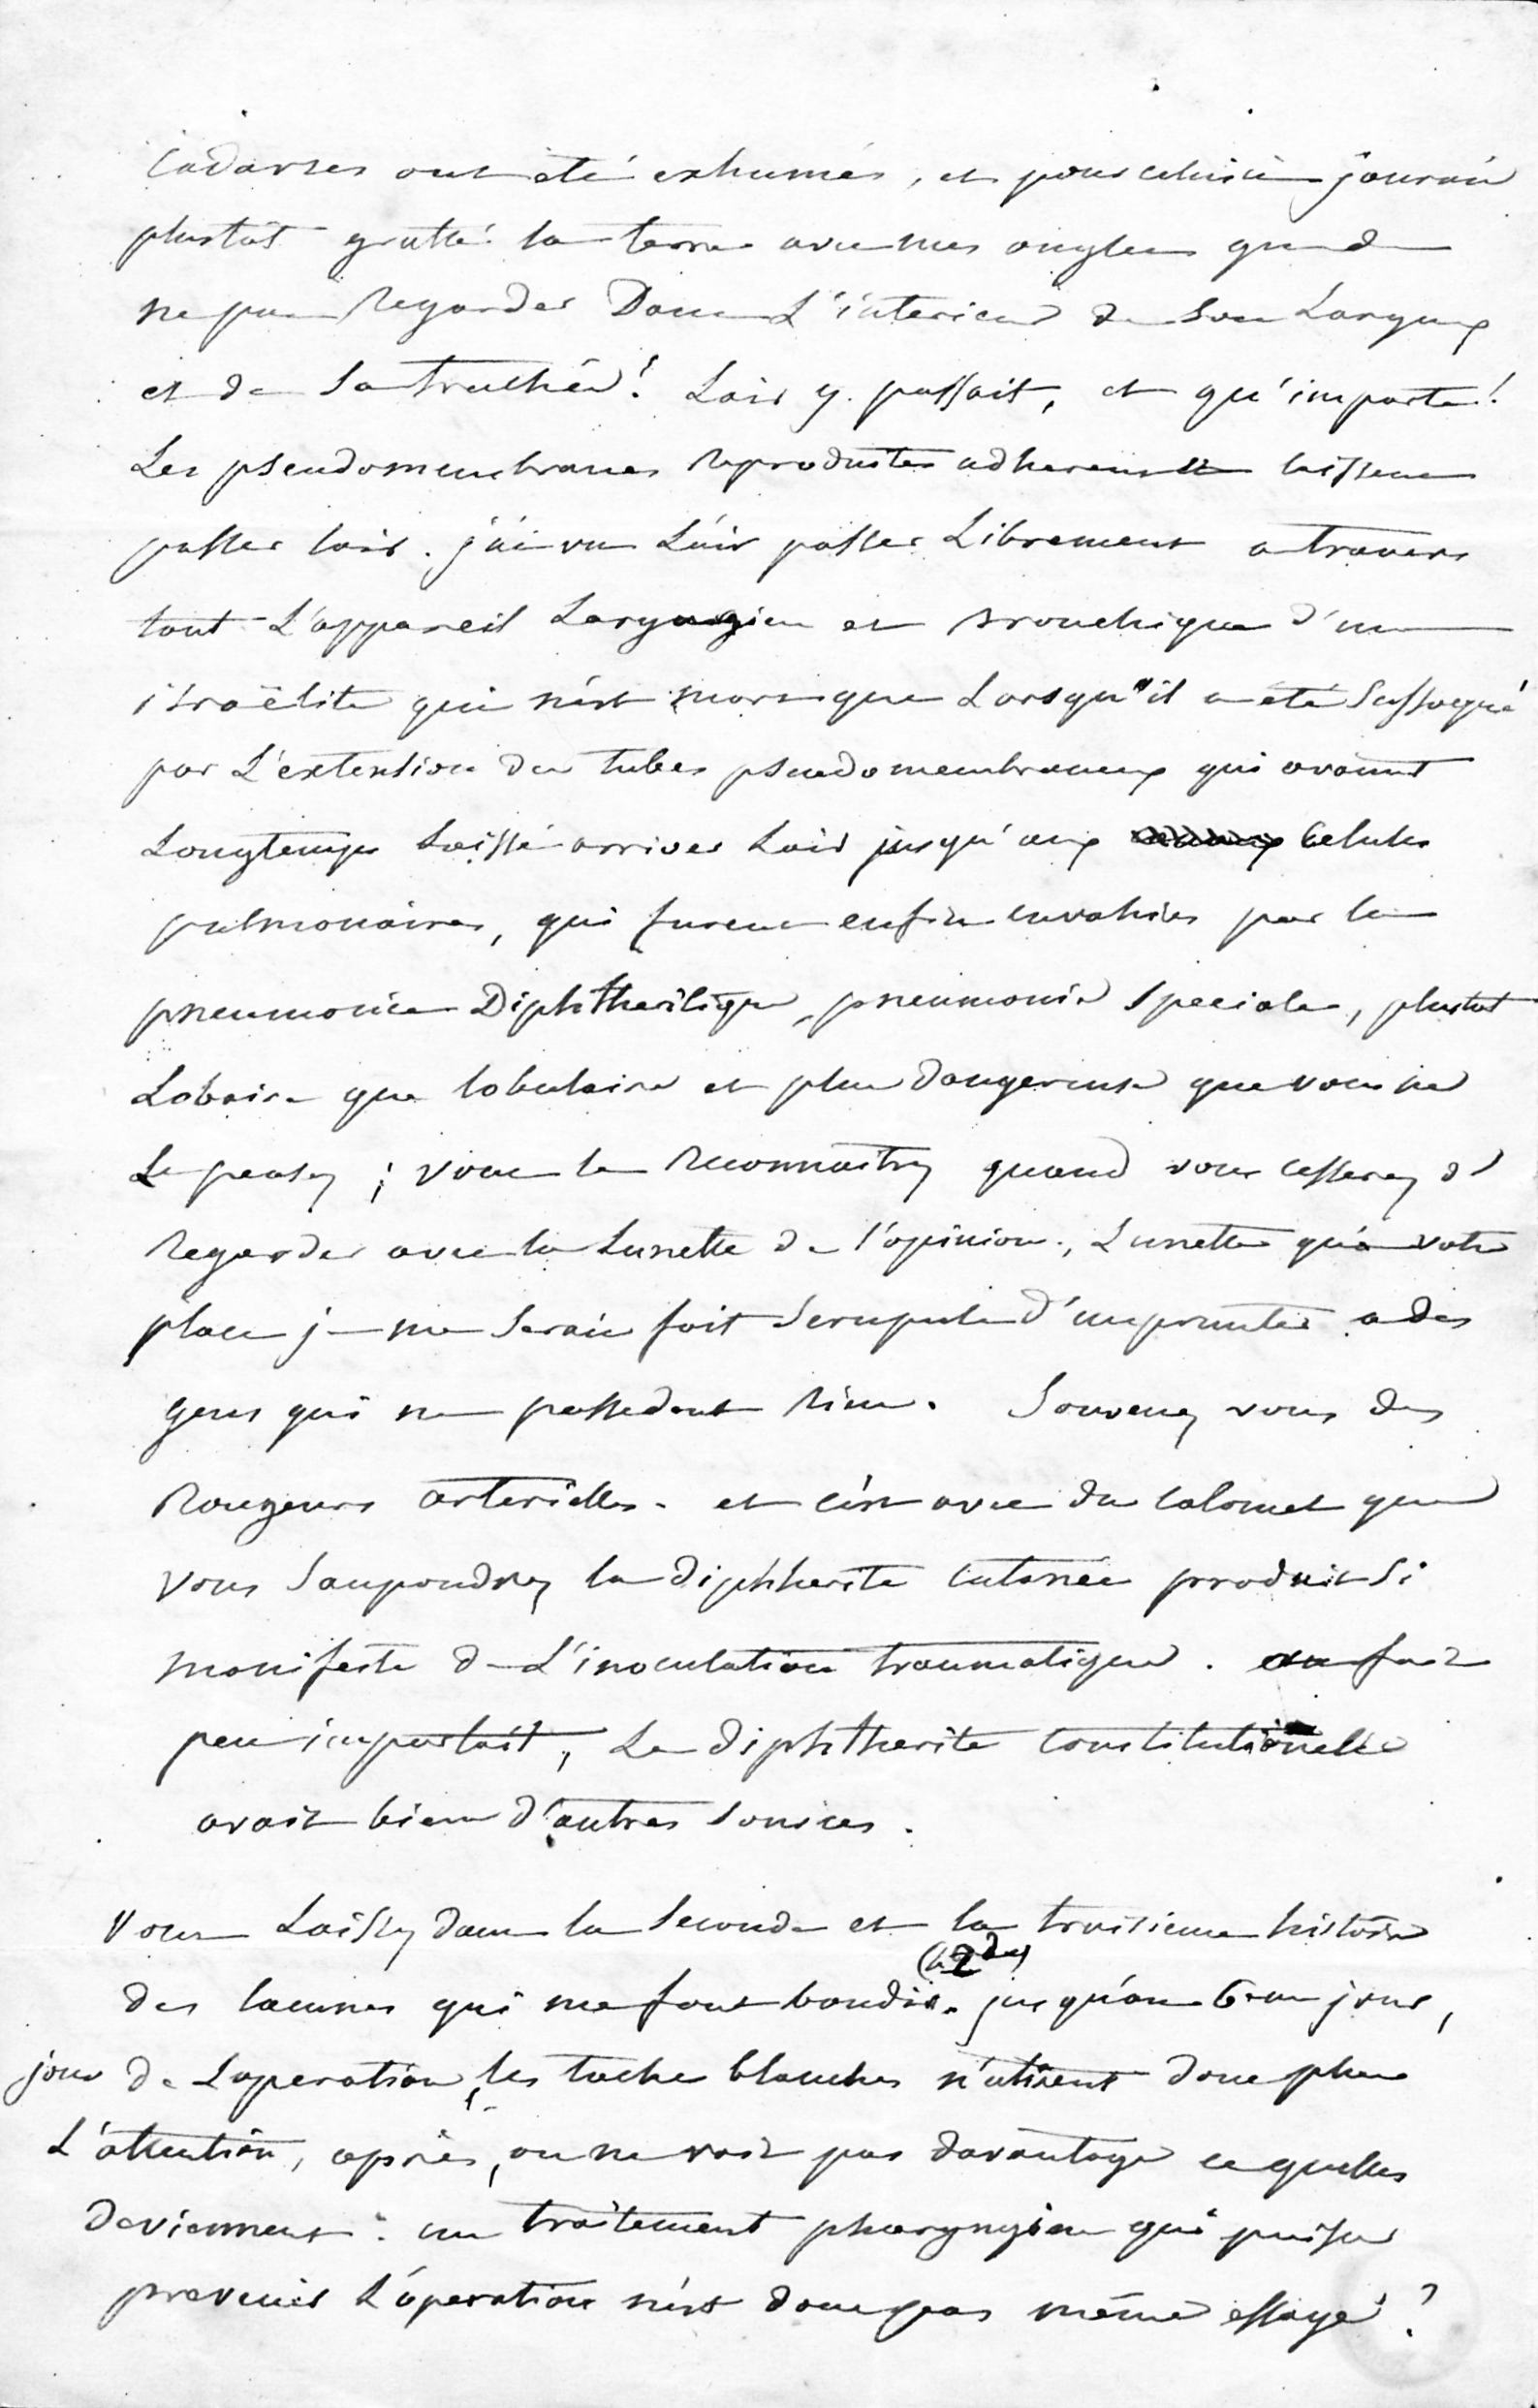 Cadavres ont eté exhumés, et pour celuici j'aurais
plustôt gratté la terre avec mes ongles que de
ne pas Regarder Dans L'interieur de son Larynx
et de sa trachée! Lair y passait, et qu'importe!
Les pseudomembranes reproduites adherentes laissent
passer lair. j'ai vu L'air passer Librement a travers
tout L'appareil Laryngien et Bronchique d'un
israëlite qui n'est mort que Lorsqu'il a eté Suffoqué
par L'extension des tubes pseudomembraneux qui avaient
Longtemps laissé arriver Lair jusqu'aux Celules
pulmonaires, qui furent enfin envahies par la
pneumonie Diphtheritique, pneumonie speciale, plustot
Lobaire que lobulaire et plus dangereuse que vous ne
Le pensez; vous la Reconnaitrez quand vous cesserez de
Regarder avec la Lunette de l'opinion, Lunette qu'a votre
place je me serais fait scrupule d'emprunter a des
gens qui ne possedent Rien. Souvenez vous des
Rougeurs arterielles. et c'est avec du calomel que
vous Saupoudrez la diphtherite cutanée produit si
manifeste de L'inoculation traumatique. au fait
peu importait, La diphtherite constitutionelle
avait bien d'autres sources.
Vous Laissez dans la seconde et la troisieme histoire
(la 2de)
des lacunes qui me font bondir. jusqu'au 6eme jour,
jour de Loperation, les tache blanches n'attirent donc plus
L'attention, après, on ne voit pas davantage ce quelles
deviennent: un traitement pharyngien qui puisse
prevenir L'óperation n'est donc pas même essayé?